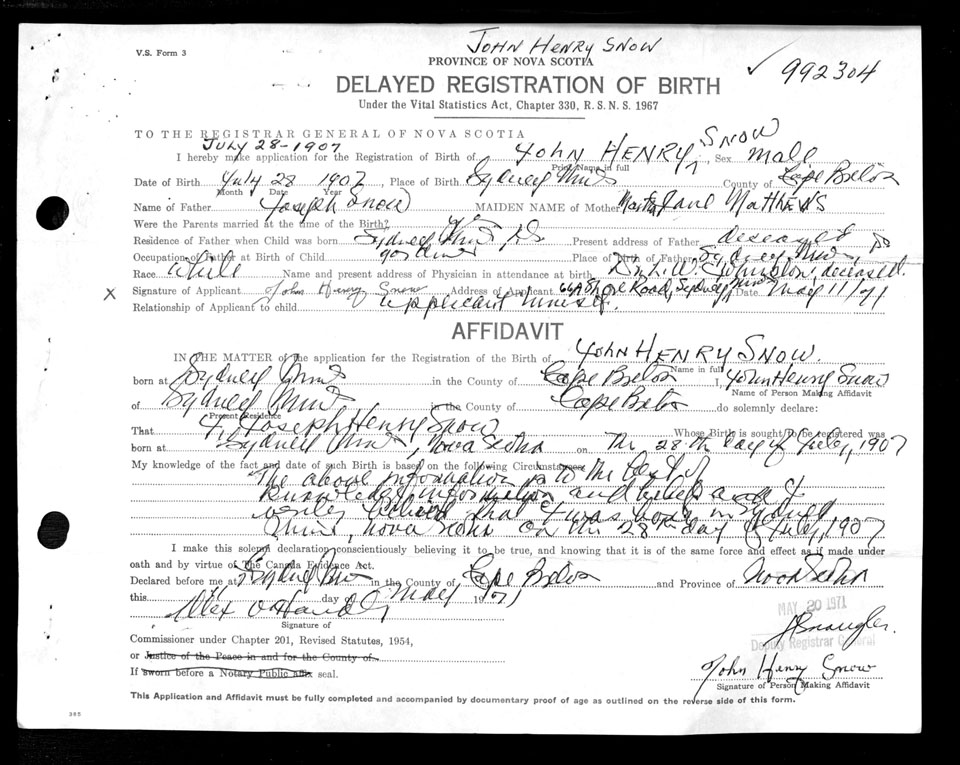 John Henry Snow
V.S. Form 3
PROVINCE OF NOVA SCOTIA
✓ 992304
DELAYED REGISTRATION OF BIRTH
Under the Vital Statistics Act, Chapter 330, R.S.N.S. 1967
TO THE REGISTRAR GENERAL OF NOVA SCOTIA
July 28-1907
I hereby make application for the Registration of Birth of John HENRY, SNOW Sex male
Print Name in full
Date of Birth July 28 1907, Place of Birth Sydney Mines County of Cape Breton
Month Date Year
Name of Father Joseph Snow MAIDEN NAME of Mother Martha Jane Matthews
Were the Parents married at the time of the Birth?
Residence of Father when Child was born Sydney Mines, NS Present address of Father deceased
Occupation of Father at Birth of Child Place of Birth of Father Sydney Mines,
Race White Name and present address of Physician in attendance at birth Johnston, deceased.
X Signature of Applicant John Henry Snow Address of Applicant Shore Road, Sydney Mines Date May 11/71
Relationship of Applicant to child applicant himself.
AFFIDAVIT
IN THE MATTER of the application for the Registration of the Birth of John HENRY SNOW.
Name in full
born at Sydney Mines in the County of Cape Breton I, John Henry Snow
Name of Person Making Affidavit
of Sydney Mines in the County of Cape Breton do solemnly declare:
Present Residence
That I, Joseph Henry Snow Whose Birth is sought to be registered was
born at Sydney Mines, Nova Scotia on the 28th day of July, 1907
My knowledge of the fact and date of such Birth is based on the following Circumstances: to the best of
The above information is
knowledge information and belief and I
verily believe that I was born in Sydney
Mines, Nova Scotia on the 28th day of July, 1907
I make this solemn declaration conscientiously believing it to be true, and knowing that it is of the same force and effect as if made under
oath and by virtue of The Canada Evidence Act.
Declared before me at Sydney Mines in the County of Cape Breton and Province of Nova Scotia
this day of May 1971
MAY 20 1971
Alex
Signature of
Deputy Registrar General
Commissioner under Chapter 201, Revised Statutes, 1954,
or Justice of the Peace in and for the County of
John Henry Snow
If sworn before a Notary Public affix seal.
Signature of Person Making Affidavit
This Application and Affidavit must be fully completed and accompanied by documentary proof of age as outlined on the reverse side of this form.
385